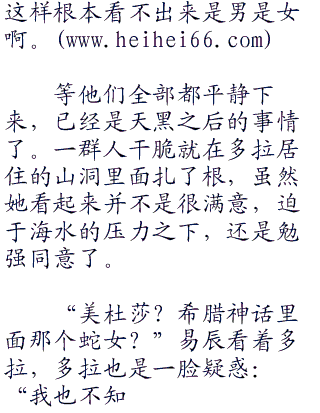 这样根本看不出来是男是女
啊。(www.heihei66.com)
等他们全部都平静下
来，已经是天黑之后的事情
了。一群人干脆就在多拉居
住的山洞里面扎了根，虽然
她看起来并不是很满意，迫
于海水的压力之下，还是勉
强同意了。
“美杜莎？希腊神话里
面那个蛇女？”易辰看着多
拉，多拉也是一脸疑惑：
“我也不知